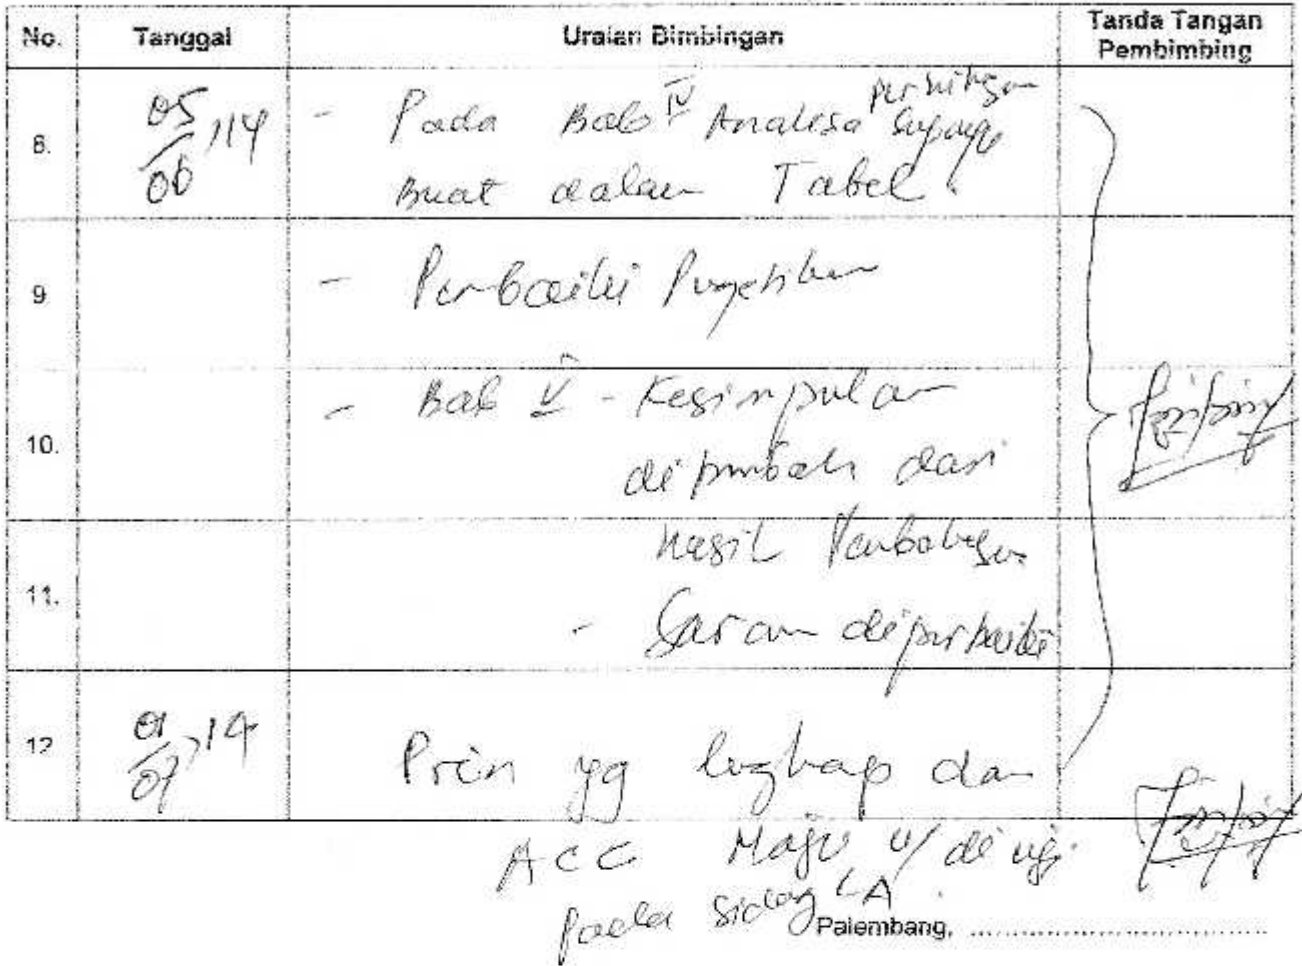 No. Tanggal Uraian Bimbingan Tanda Tangan Pembimbing
8. 05/06,14 - Pada Bab IV Analisa perhitungan supaya
Buat dalam Tabel.
9 - Perbaiki Pengetikan
10. - Bab V - Kesimpulan
dari
11. Hasil Pembahasan
- Saran diperbaiki
12 01/07,14 Prin yg lengkap dan
ACC Maju u/ di uji
pada sidang LA.
Palembang, ........................................